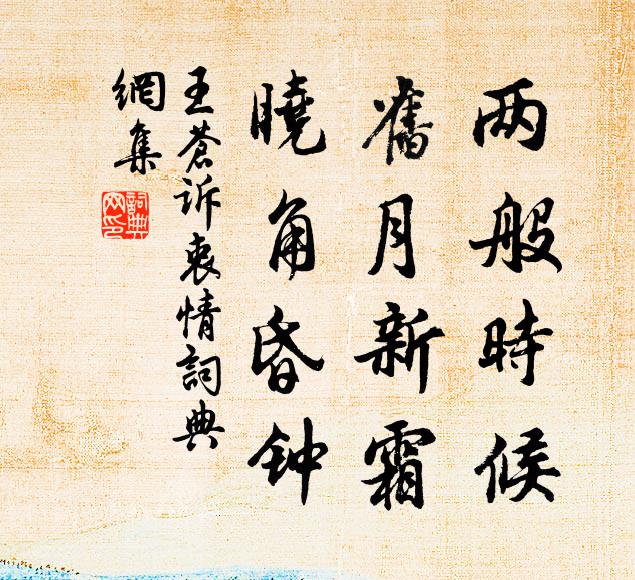 两般時候
舊月新霜
曉角昏钟
王蒼诉衷情詞典
網集
詞典
网印